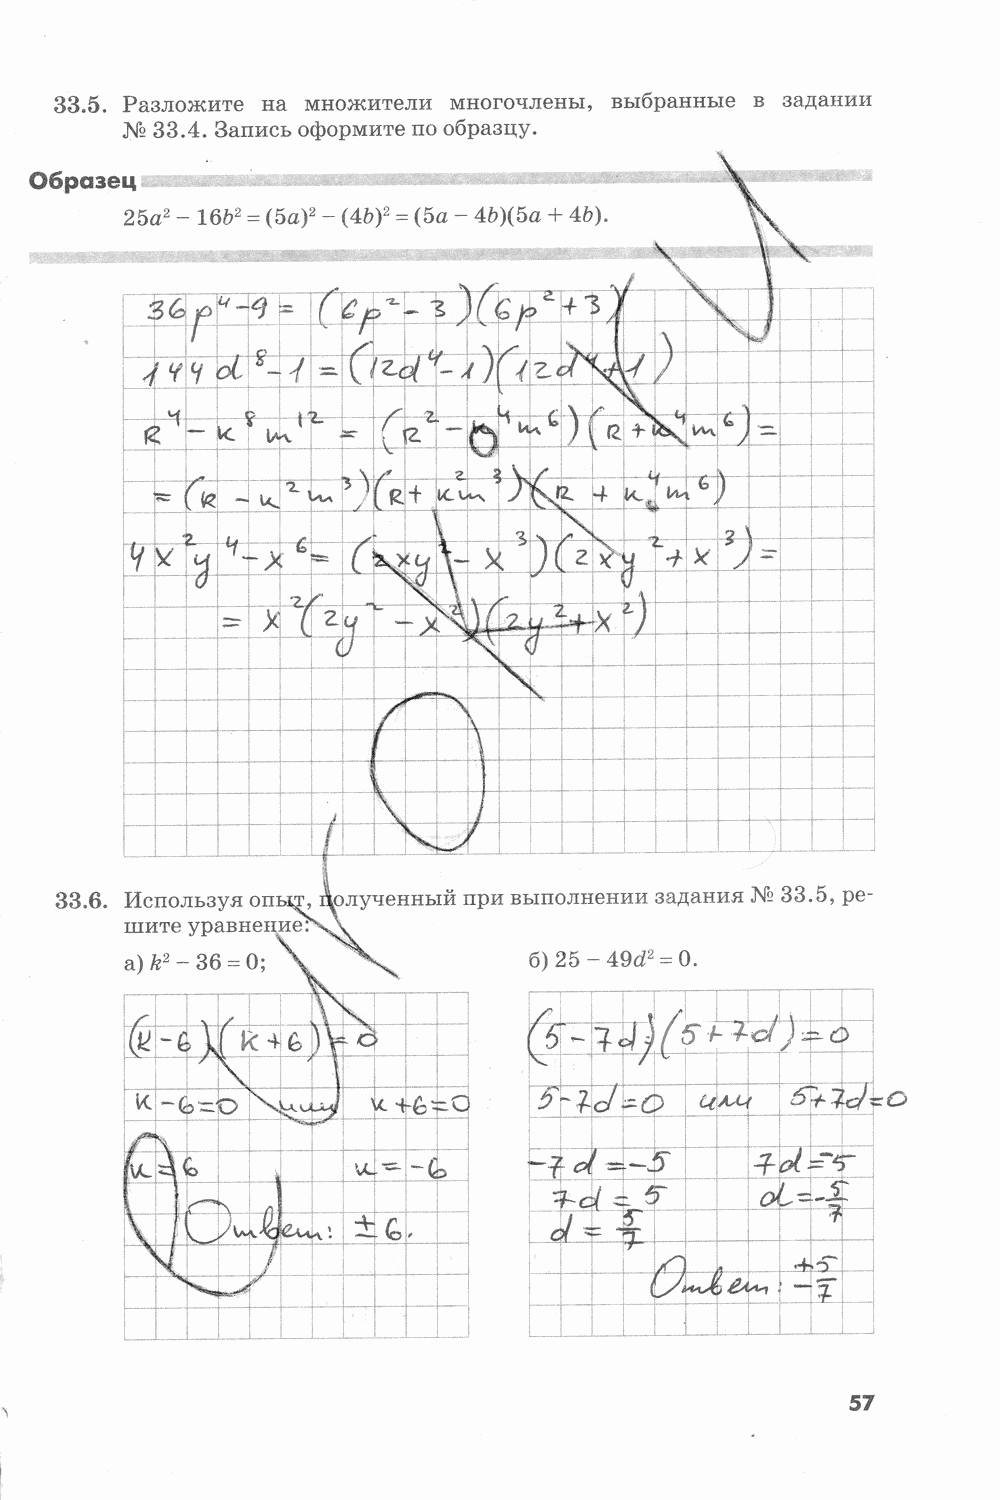 33.5. Разложите на множители многочлены, выбранные в задании
№ 33.4. Запись оформите по образцу.
Образец
25a² − 16b² = (5a)² − (4b)² = (5a − 4b)(5a + 4b).
36p⁴-9 = (6p²-3)(6p²+3)
144d⁸-1 = (12d⁴-1)(12d⁴+1)
R⁴-к⁸m¹² = (R²-к⁴m⁶)(R+к⁴m⁶)=
= (R-к²m³)(R+к²m³)(R+к⁴m⁶)
4x²y⁴-x⁶= (2xy²-x³)(2xy²+x³)=
= x²(2y²-x²)(2y²+x²)
33.6. Используя опыт, полученный при выполнении задания № 33.5, ре-
шите уравнение:
а) k² − 36 = 0;
б) 25 − 49d² = 0.
(k-6)(k+6)=0
k-6=0 или k+6=0
k=6 k=-6
Ответ: ±6.
(5-7d)(5+7d)=0
5-7d=0 или 5+7d=0
-7d=-5 7d=-5
7d=5 d=-5/7
d=5/7
Ответ: ±5/7
57